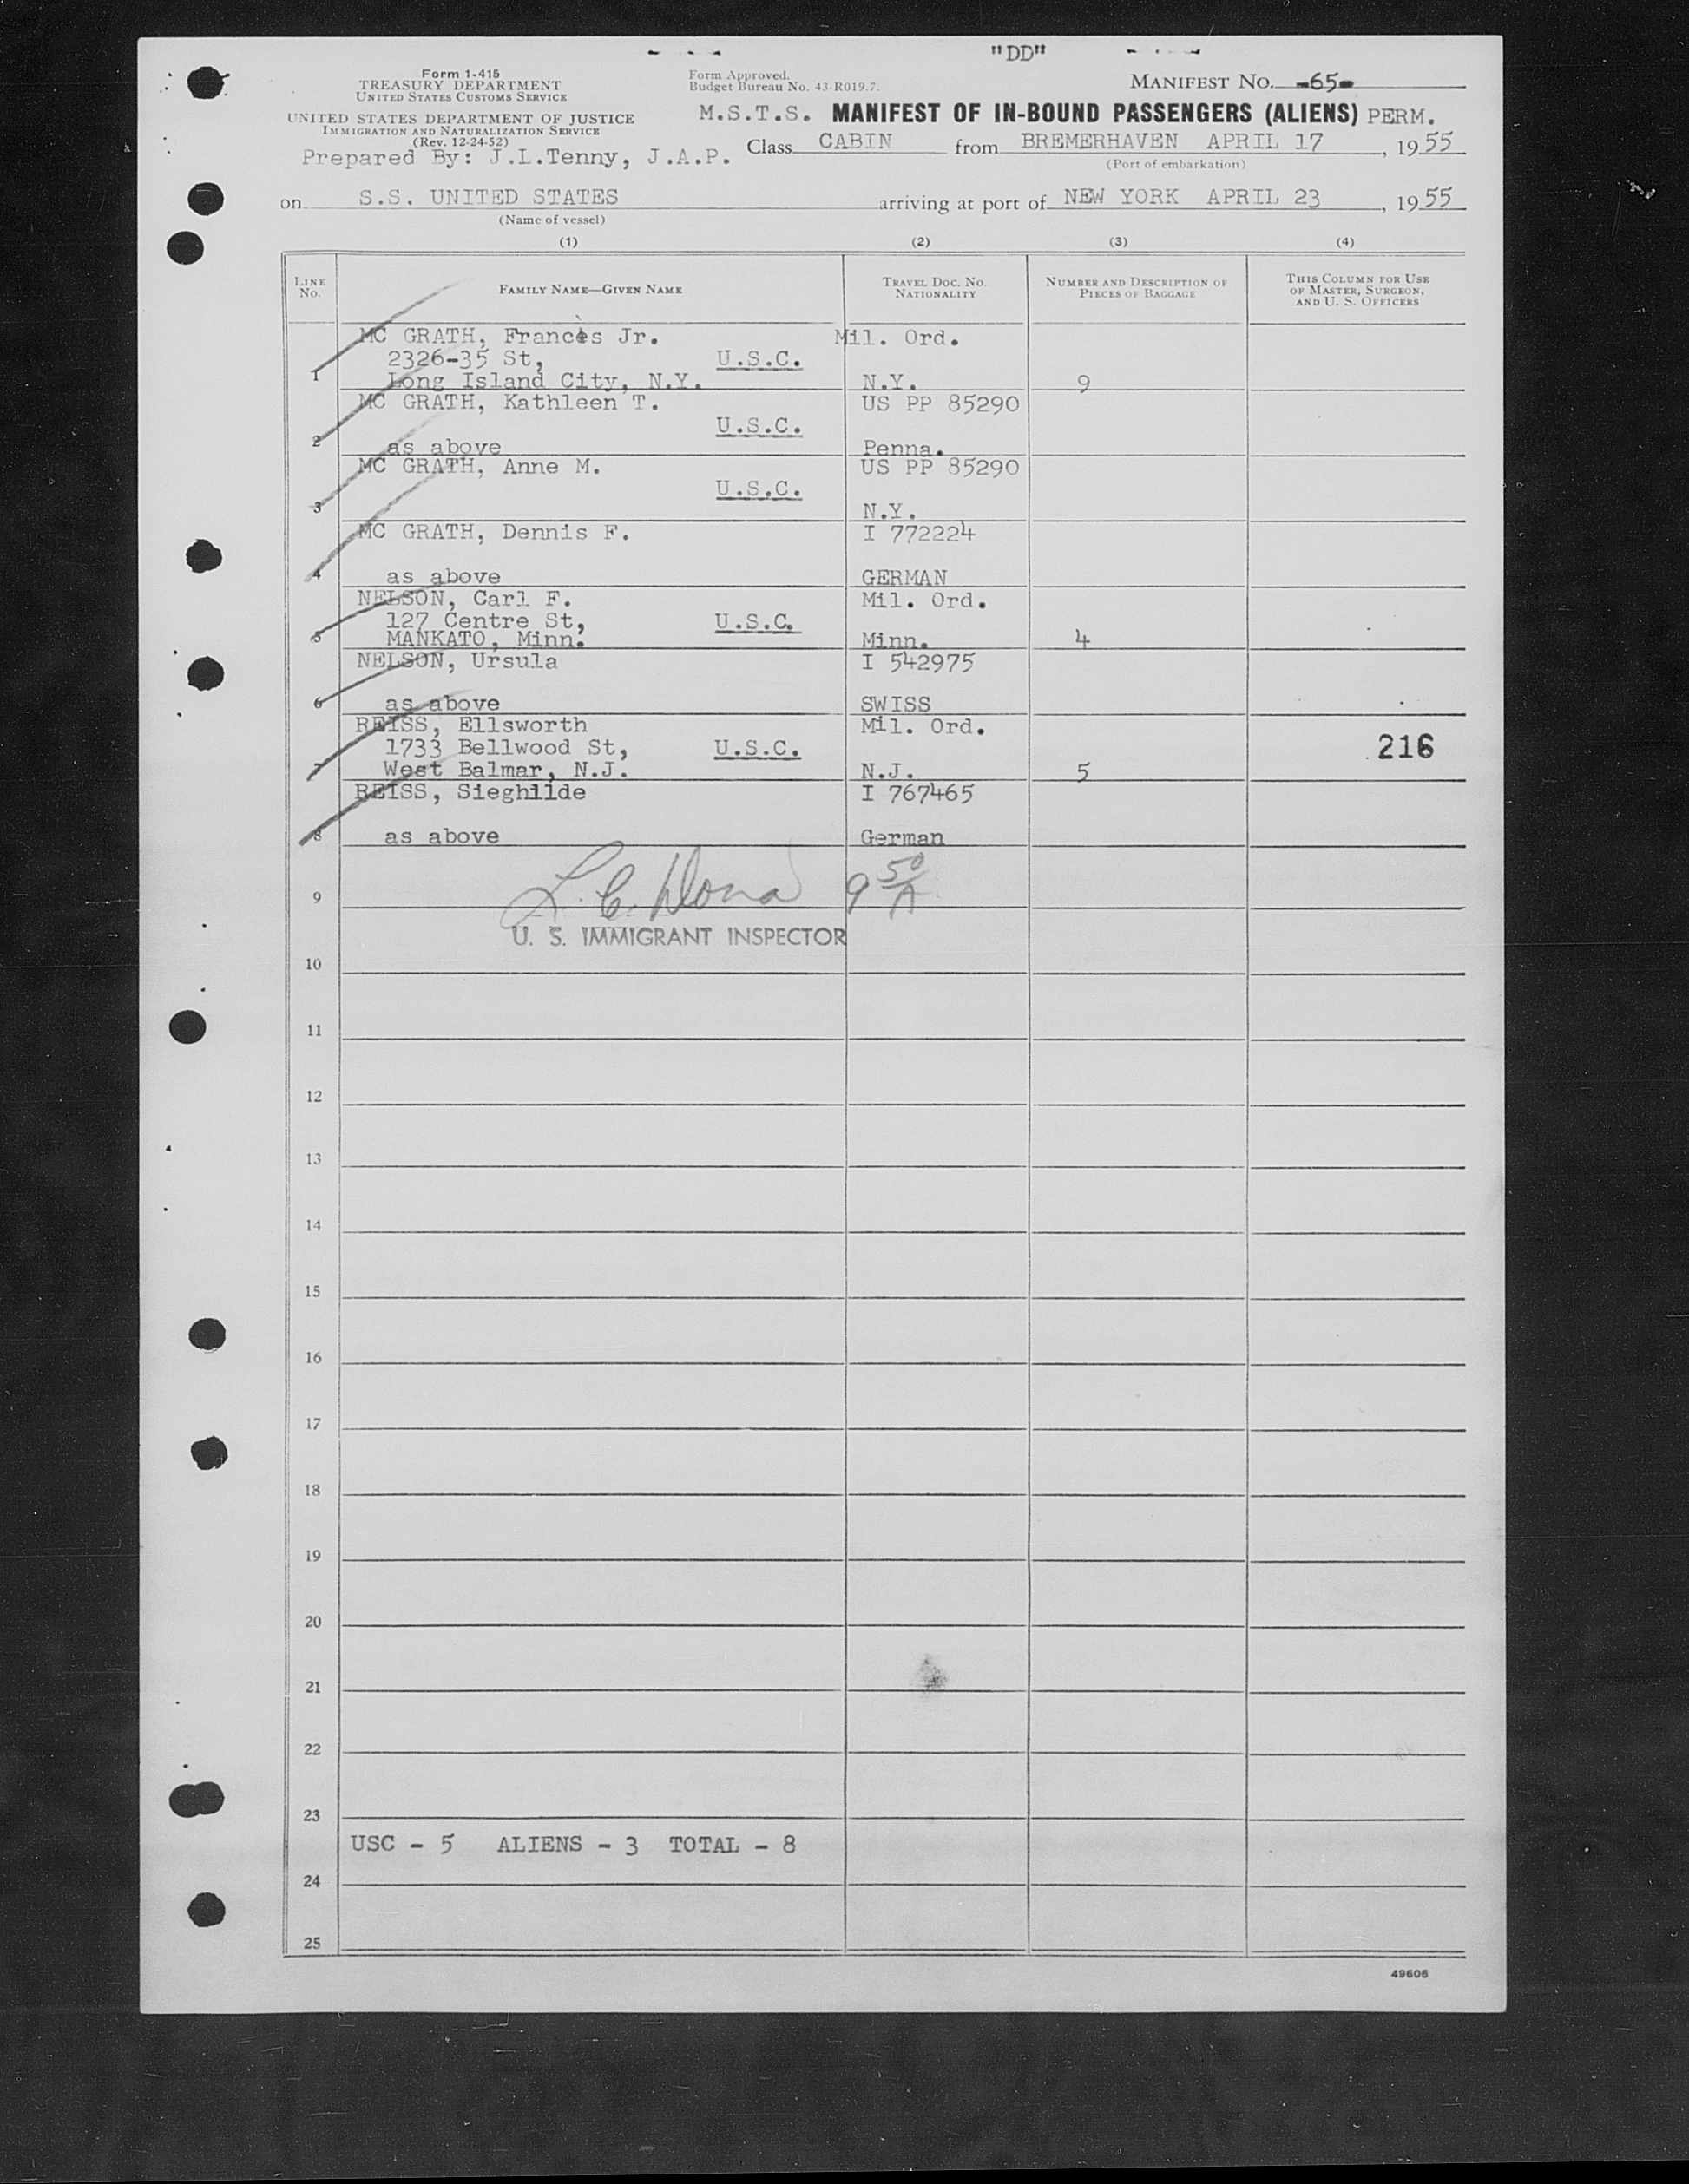 "DD"
Form 1-415
TREASURY DEPARTMENT
UNITED STATES CUSTOMS SERVICE
Form Approved.
Budget Bureau No. 43-R019.7.
MANIFEST NO. -65-
UNITED STATES DEPARTMENT OF JUSTICE
IMMIGRATION AND NATURALIZATION SERVICE
(Rev. 12-24-52)
M.S.T.S. MANIFEST OF IN-BOUND PASSENGERS (ALIENS) PERM.
Prepared By: J.L.Tenny, J.A.P.
Class CABIN from BREMERHAVEN APRIL 17, 1955
(Port of embarkation)
on S.S. UNITED STATES arriving at port of NEW YORK APRIL 23, 1955
(Name of vessel)
(1) (2) (3) (4)
LINE NO.
FAMILY NAME—GIVEN NAME
TRAVEL DOC. NO. NATIONALITY
NUMBER AND DESCRIPTION OF PIECES OF BAGGAGE
THIS COLUMN FOR USE OF MASTER, SURGEON, AND U. S. OFFICERS
MC GRATH, Francis Jr. Mil. Ord.
2326-35 St, U.S.C.
1 Long Island City, N.Y. N.Y. 9
MC GRATH, Kathleen T. US PP 85290
U.S.C.
2 as above Penna.
MC GRATH, Anne M. US PP 85290
U.S.C.
3 N.Y.
MC GRATH, Dennis F. I 772224
4 as above GERMAN
NELSON, Carl F. Mil. Ord.
127 Centre St, U.S.C.
5 MANKATO, Minn. Minn. 4
NELSON, Ursula I 542975
6 as above SWISS
REISS, Ellsworth Mil. Ord.
1733 Bellwood St, U.S.C. 216
7 West Balmar, N.J. N.J. 5
REISS, Sieghilde I 767465
8 as above German
9 L. C. Dona 9 50/A
U. S. IMMIGRANT INSPECTOR
10
11
12
13
14
15
16
17
18
19
20
21
22
23
USC - 5 ALIENS - 3 TOTAL - 8
24
25
49606